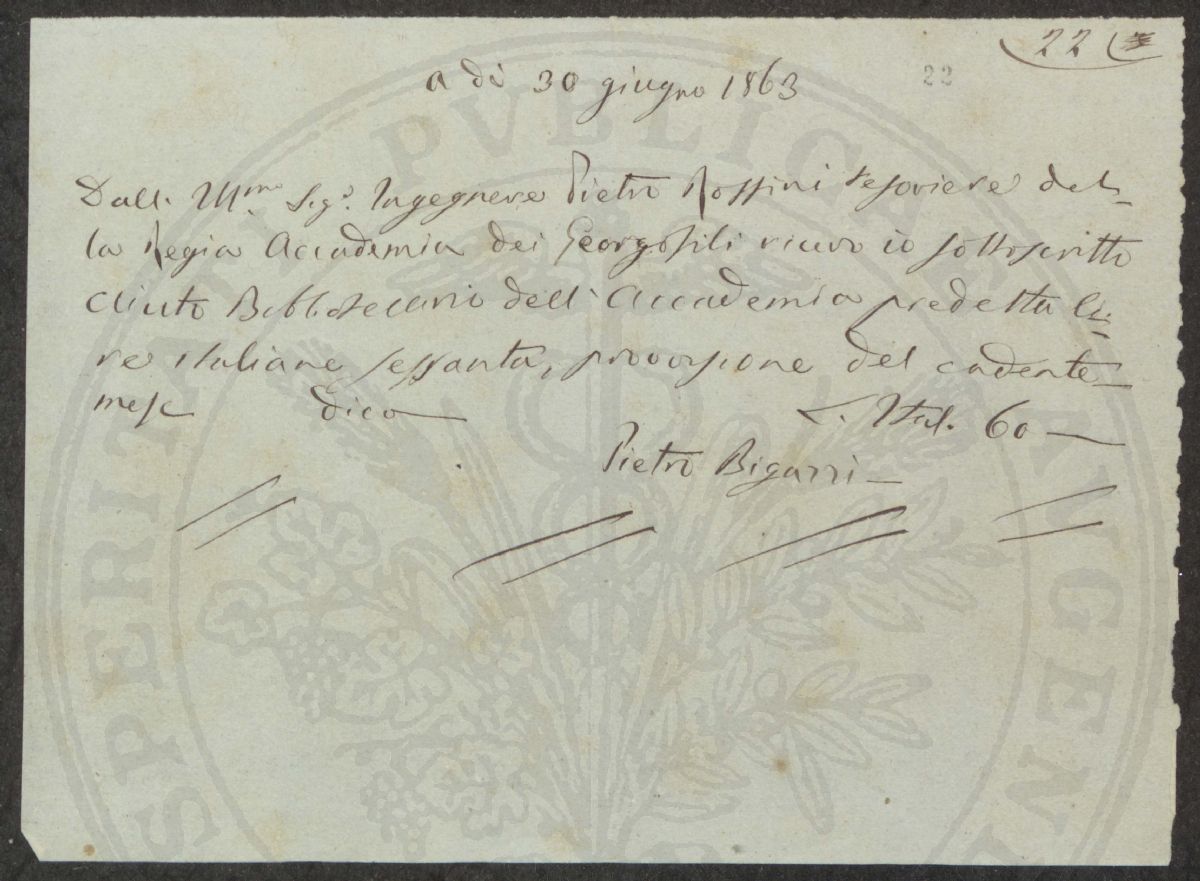 22
22
a dì 30 giugno 1863
Dall. Ill.mo Sig.r Ingegnere Pietro Rossini tesoriere del-
la Regia Accademia dei Georgofili ricevo io sottoscritto
Aiuto Bibliotecario dell' Accademia predetta Li-
re italiane sessanta, provvisione del cadente
mese dico L. Ital. 60
Pietro Bigazzi
SPERITATI PVBLICAE AVGEN